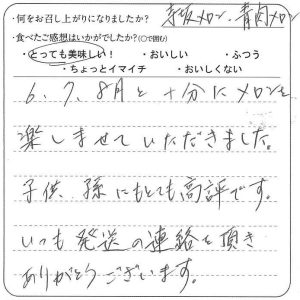 ・何をお召し上がりになりましたか? 赤坂メロン、青肉メロン
・食べたご感想はいかがでしたか?(○で囲む)
・とっても美味しい! ・おいしい ・ふつう
・ちょっとイマイチ ・おいしくない
6、7、8月と十分にメロンを
楽しませていただきました。
子供、孫にもとても高評です。
いつも発送の連絡を頂き
ありがとうございます。